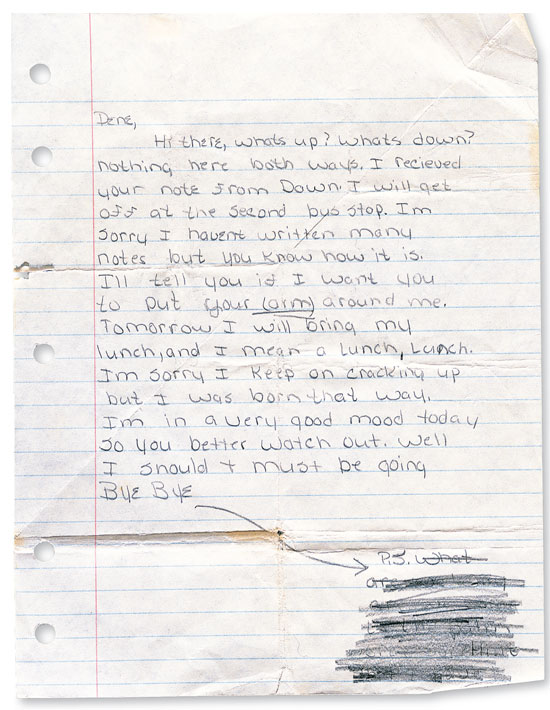 Dene,
Hi there, whats up? Whats down?
nothing here both ways. I recieved
your note from Dawn. I will get
off at the second bus stop. Im
sorry I havent written many
notes but you know how it is.
I'll tell you if I want you
to put your (arm) around me.
Tomorrow I will bring my
lunch, and I mean a Lunch, Lunch.
Im sorry I keep on cracking up
but I was born that way.
Im in a very good mood today
so you better watch out. Well
I should + must be going
Bye Bye
P.S. What
are